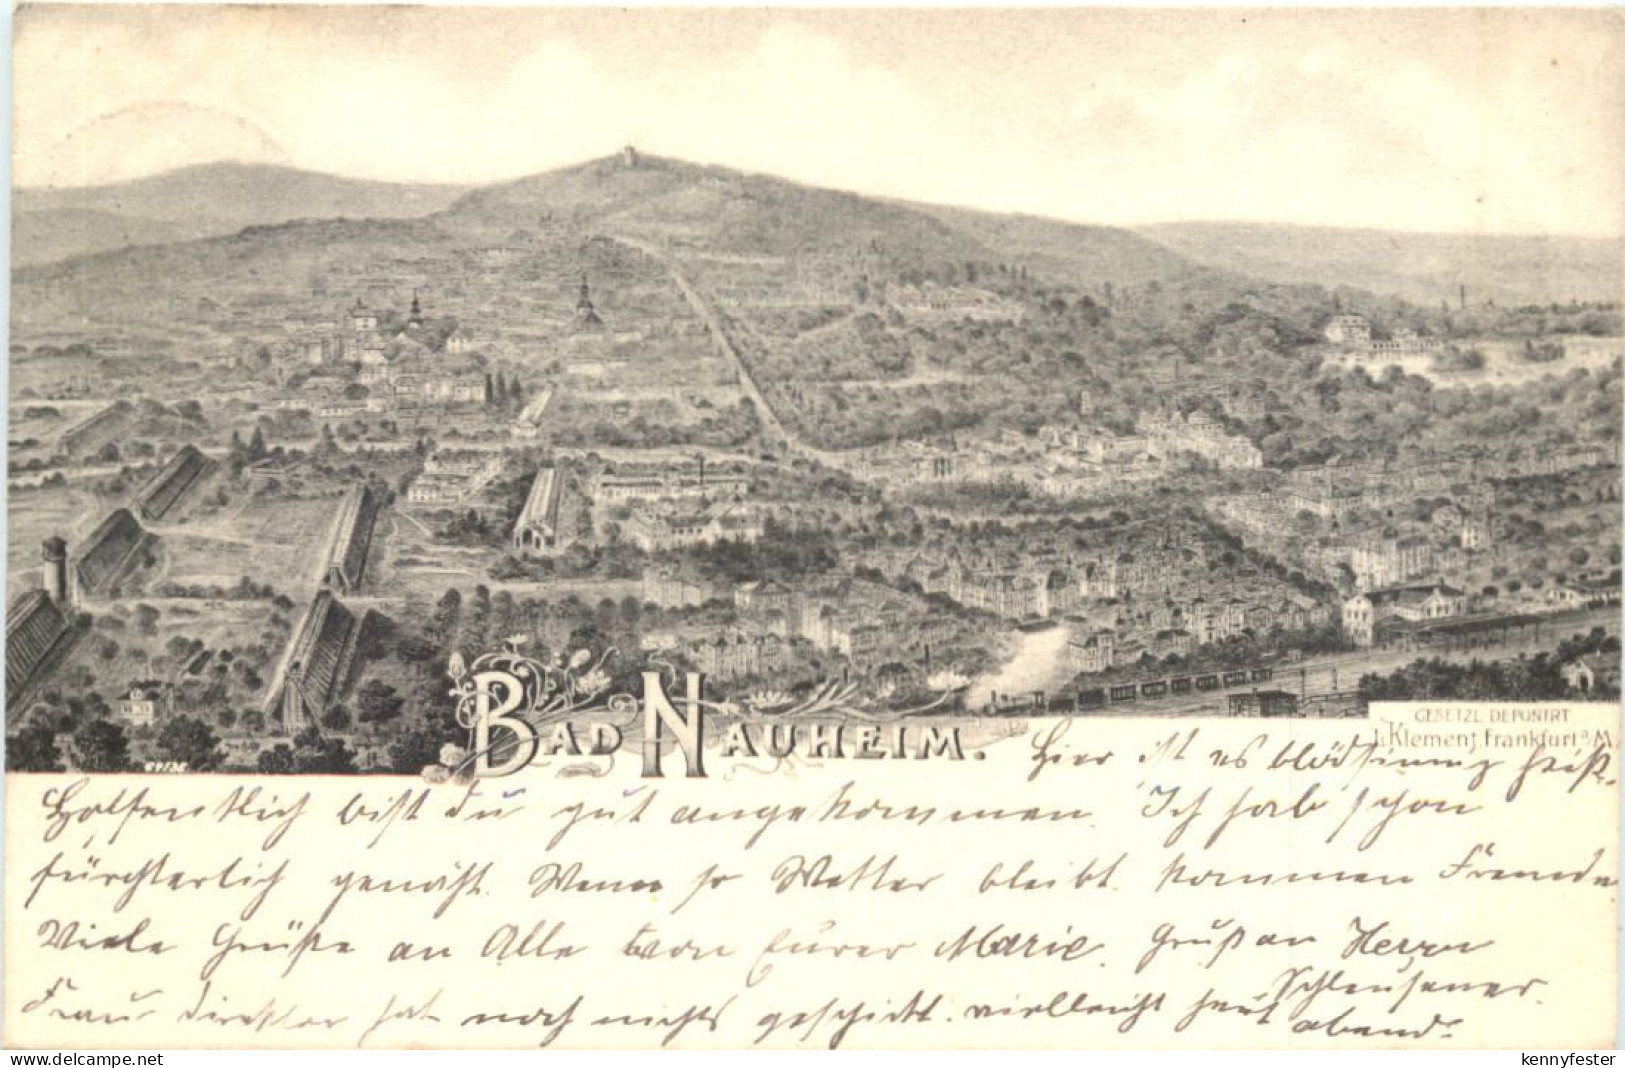 BAD NAUHEIM.
GESETZL. DEPONIRT
L. Klement, Frankfurt a/M
Hier ist es blödsinnig heiß.
Hoffentlich bist du gut angekommen. Ich hab schon
fürchterlich genäht. Wenn so Wetter bleibt. kommen Fremde
Viele Grüße an Alle von Eurer Marie. Gruß an Herrn
Schleusener.
Frau Direktor hat noch nichts geschickt. vielleicht heut
abend.
www.delcampe.net
kennyfester